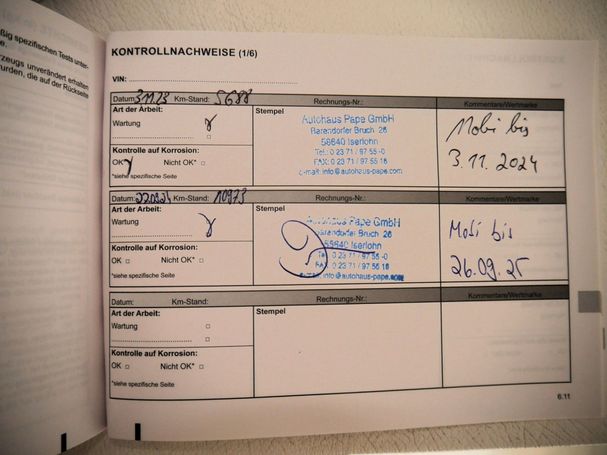 ßig spezifischen Tests unter-
e.
zeugs unverändert erhalten
urden, die auf der Rückseite
KONTROLLNACHWEISE (1/6)
VIN:
Datum: 3.11.23 Km-Stand: 5688 Rechnungs-Nr.: Kommentare/Wertmarke
Art der Arbeit:
Wartung
Stempel
Autohaus Pape GmbH
Barendorfer Bruch 26
58640 Iserlohn
Tel.: 0 23 71 / 97 55 -0
FAX: 0 23 71 / 97 55 18
e-mail: info@autohaus-pape.com
Mobi bis
3.11.2024
Kontrolle auf Korrosion:
OK Nicht OK*
*siehe spezifische Seite
Datum: Km-Stand: 10973 Rechnungs-Nr.: Kommentare/Wertmarke
Art der Arbeit:
Wartung
Stempel
Autohaus Pape GmbH
Barendorfer Bruch 26
58640 Iserlohn
Tel.: 0 23 71 / 97 55 -0
FAX: 0 23 71 / 97 55 18
e-mail: info@autohaus-pape.com
Mobi bis
26.09.25
Kontrolle auf Korrosion:
OK Nicht OK*
*siehe spezifische Seite
Datum: Km-Stand: Rechnungs-Nr.: Kommentare/Wertmarke
Art der Arbeit:
Wartung
Stempel
Kontrolle auf Korrosion:
OK Nicht OK*
*siehe spezifische Seite
6.11